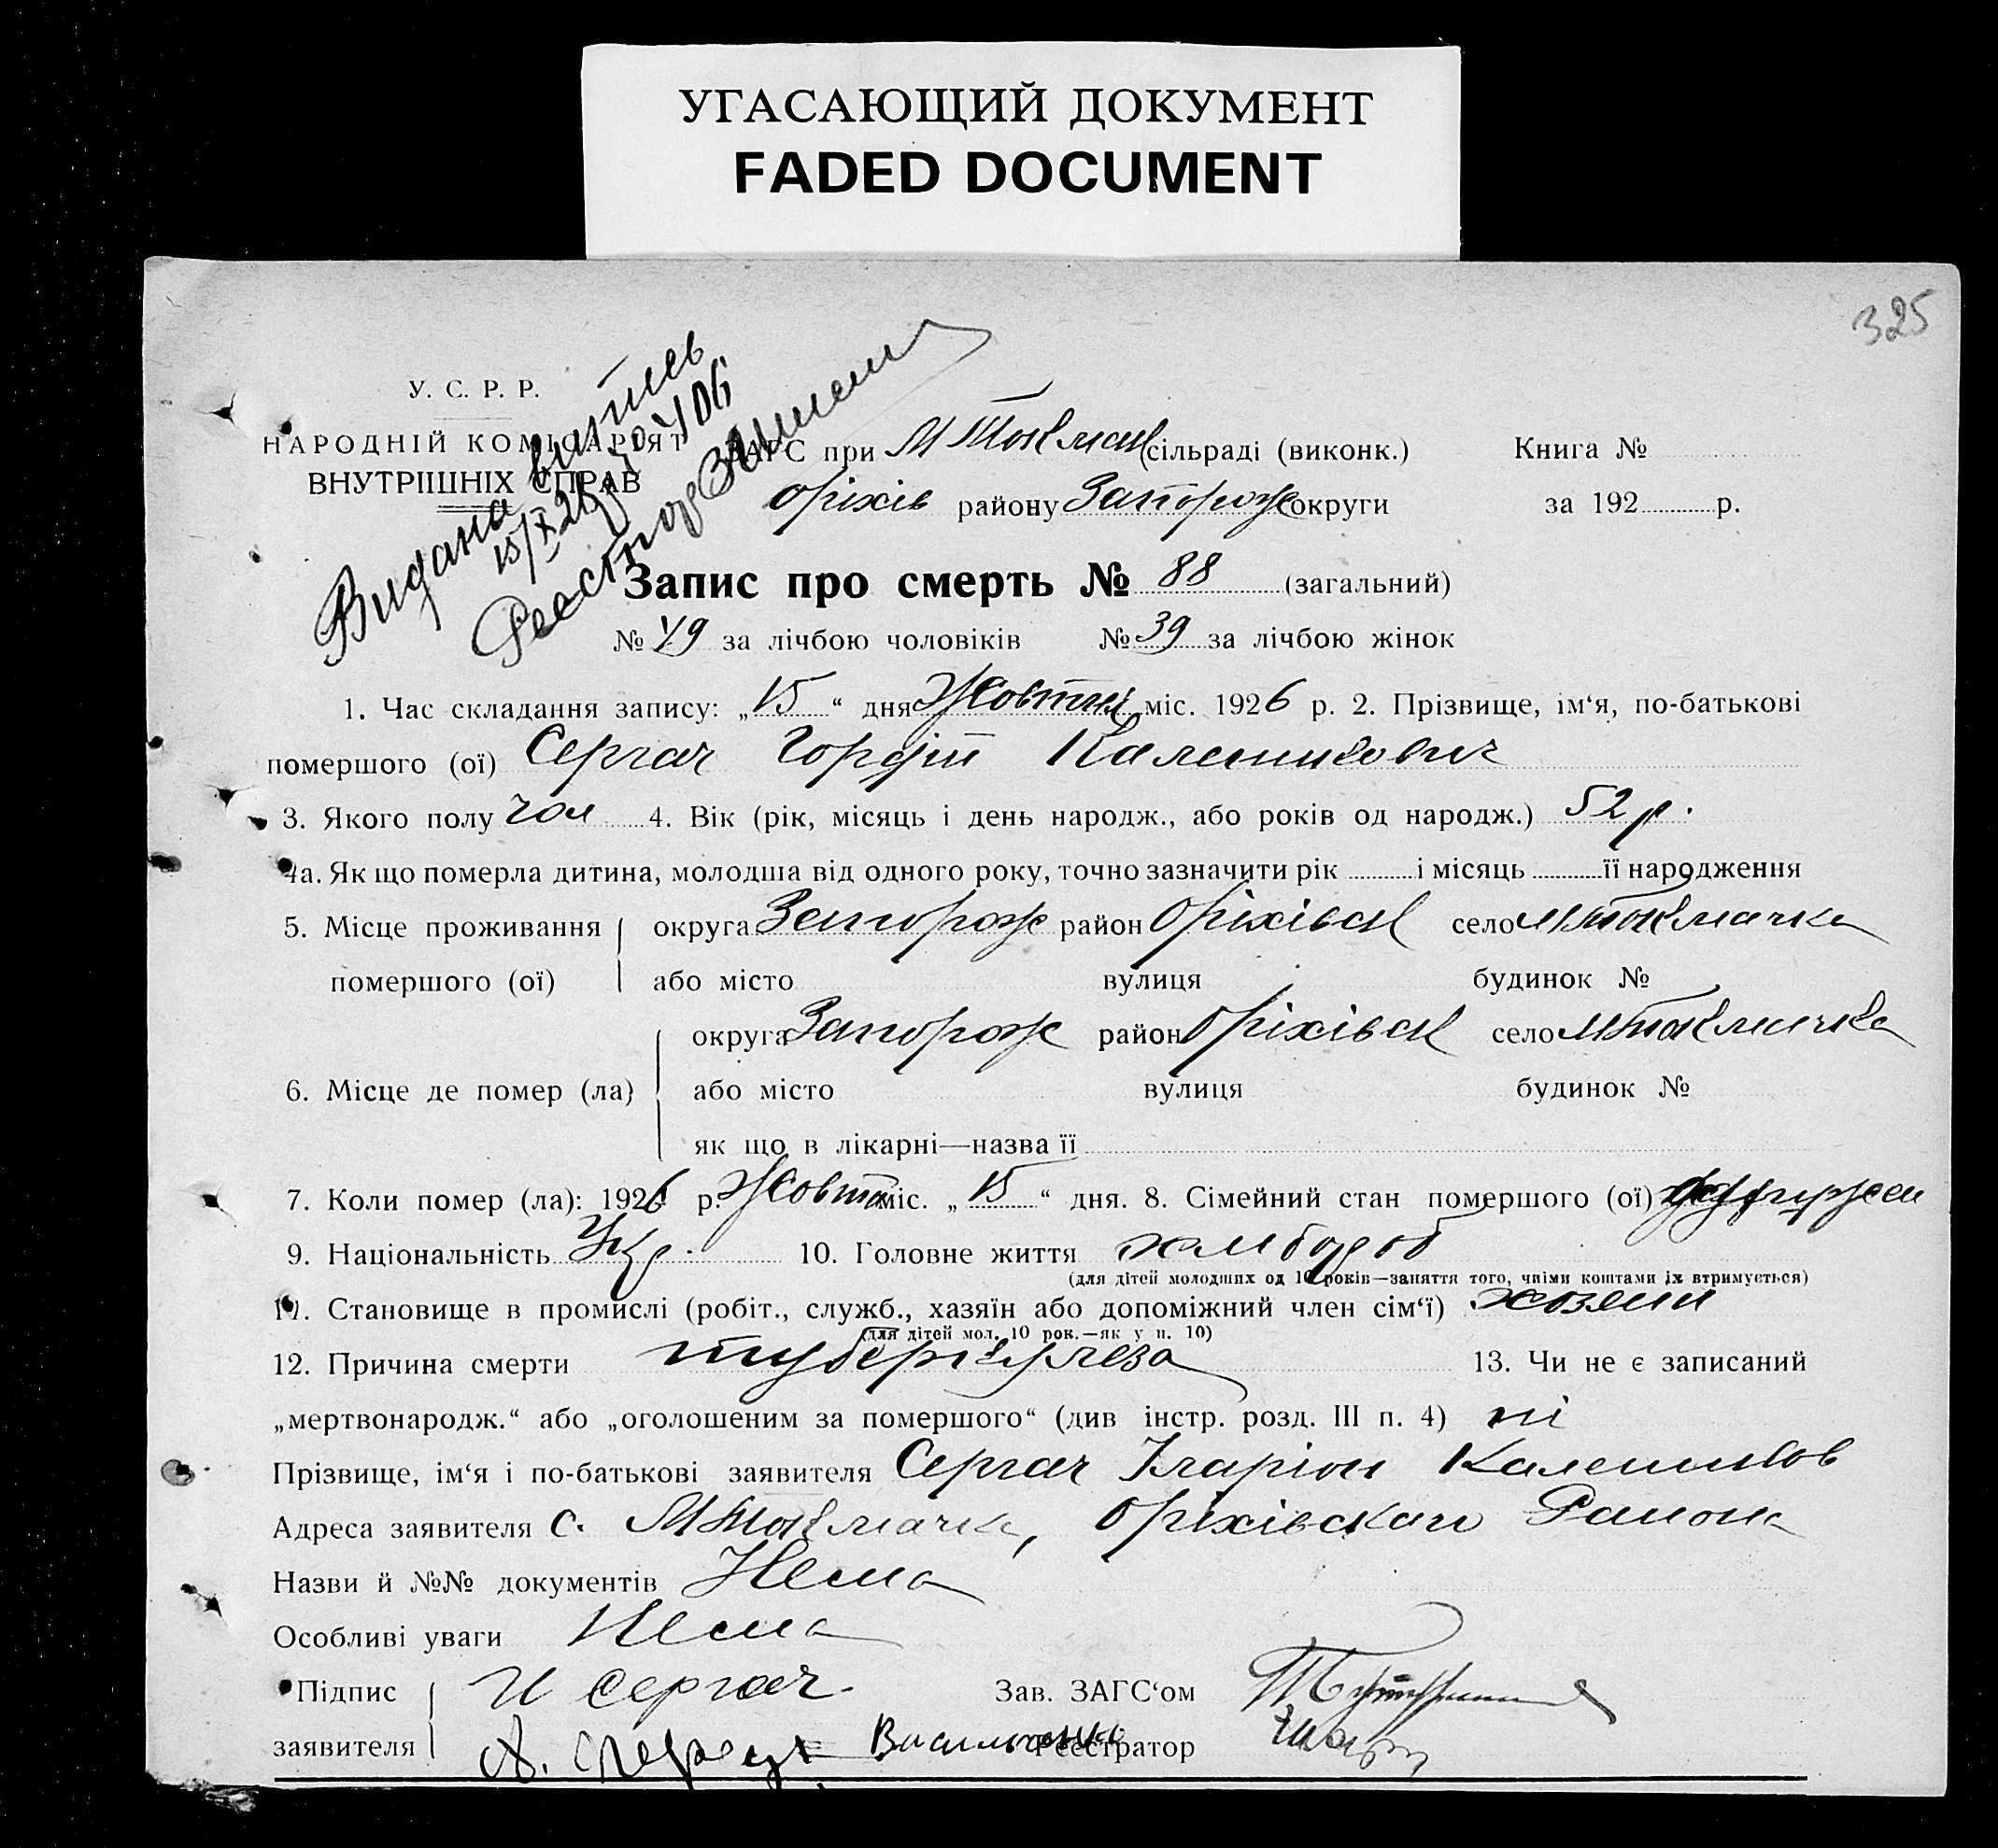 УГАСАЮЩИЙ ДОКУМЕНТ
FADED DOCUMENT
325
У. С. Р. Р.
НАРОДНІЙ КОМІСАРІЯТ
ВНУТРІШНІХ СПРАВ
Видана випись
15/X 26 р
ЗАГС при М Токмац сільраді (виконк.)
Оріхів району Запорож округи
Книга №
за 192 р.
Запис про смерть № 88 (загальний)
№ 49 за лічбою чоловіків № 39 за лічбою жінок
1. Час складання запису: „15“ дня Жовтня міс. 1926 р. 2. Прізвище, ім'я, по-батькові
помершого (ої) Сергач Гордій Каленикович
3. Якого полу чол 4. Вік (рік, місяць і день народж., або років од народж.) 52 р.
4а. Як що померла дитина, молодша від одного року, точно зазначити рік і місяць її народження
5. Місце проживання помершого (ої) округа Запорож район Оріхівск село МТокмачка
або місто вулиця будинок №
6. Місце де помер (ла) округа Запорож район Оріхівск село МТокмачка
або місто вулиця будинок №
як що в лікарні—назва її
7. Коли помер (ла): 1926 р. Жовтня міс. „15“ дня. 8. Сімейний стан помершого (ої)
9. Національність Укр. 10. Головне життя хлібороб
(для дітей молодших од 10 років—заняття того, чиїми коштами їх втримується)
11. Становище в промислі (робіт., служб., хазяїн або допоміжний член сім‘ї) хозяин
(для дітей мол. 10 рок.—як у п. 10)
12. Причина смерти туберкулеза 13. Чи не є записаний
„мертвонародж.“ або „оголошеним за помершого“ (див інстр. розд. III п. 4) ні
Прізвище, ім‘я і по-батькові заявителя Сергач Іларіон Калеников
Адреса заявителя с. МТокмачка, Оріхівскаго Района
Назви й №№ документів Нема
Особливі уваги Нема
Підпис заявителя И Сергач
Зав. ЗАГС‘ом
Реєстратор